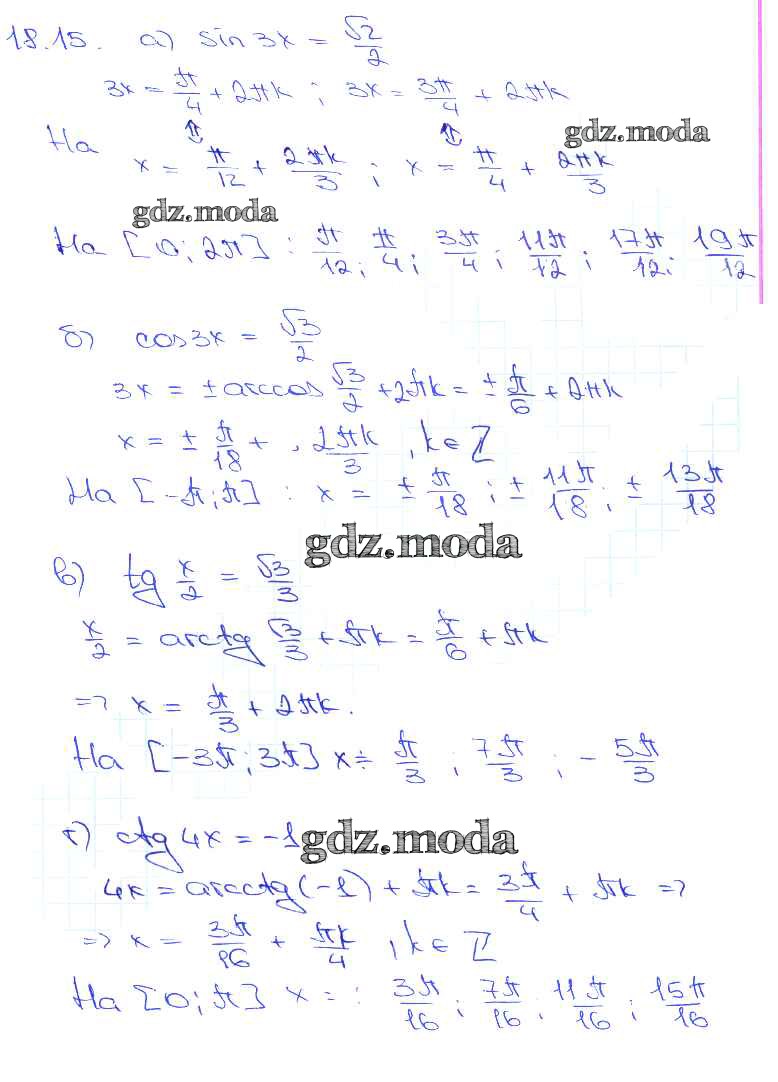 18.15. а) sin 3x = √2/2
3x = π/4 + 2πk ; 3x = 3π/4 + 2πk
⇕ ⇕
На gdz.moda
x = π/12 + 2πk/3 ; x = π/4 + 2πk/3
gdz.moda
На [0; 2π] : π/12; π/4; 3π/4; 11π/12; 17π/12; 19π/12
б) cos 3x = √3/2
3x = ± arccos √3/2 + 2πk = ± π/6 + 2πk
x = ± π/18 + , 2πk/3 , k ∈ Z
На [-π; π] : x = ± π/18 ; ± 11π/18 ; ± 13π/18
gdz.moda
в) tg x/2 = √3/3
x/2 = arctg √3/3 + πk = π/6 + πk
=> x = π/3 + 2πk.
На [-3π; 3π] x ÷ π/3 ; 7π/3 ; - 5π/3
г) ctg 4x = -1 gdz.moda
4x = arcctg(-1) + πk = 3π/4 + πk =>
=> x = 3π/16 + πk/4 , k ∈ Z
На [0; π] x = : 3π/16 ; 7π/16 ; 11π/16 ; 15π/16